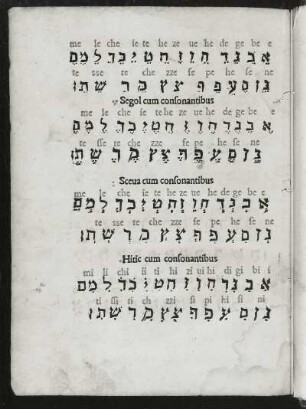 me le che ie te he ze ue he de ge be e
אֵ בֵ גֵ דֵ הֵ וֵ זֵ חֵ טֵ יֵ כֵ ךֵ לֵ מֵ ם
te sse re che zze se pe he se ne
נֵ ן סֵ עֵ פֵ ף צֵ ץ קֵ רֵ שֵ תֵ
Segol cum consonantibus
me le che ie te he ze ue he de ge be e
אֶ בֶ גֶ דֶ הֶ וֶ זֶ חֶ טֶ יֶ כֶ ךֶ לֶ מֶ ם
te sse re che zze se pe he se ne
נֶ ן סֶ עֶ פֶ ף צֶ ץ קֶ רֶ שֶ תֶ
Sceua cum consonantibus
me le che ie te he ze ue he de ge be e
אְ בְ גְ דְ הְ וְ זְ חְ טְ יְ כְ ךְ לְ מְ ם
te sse re te che zze se pe he se ne
נְ ן סְ עְ פְ ף צְ ץ קְ רְ שְ תְ
Hiric cum consonantibus
mi li chi ii ti hi zi ui hi di gi bi i
אִ בִ גִ דִ הִ וִ זִ חִ טִ יִ כִ ךִ לִ מִ ם
ti ssi ri chi zzi si pi hi si ni
נִ ן סִ עִ פִ ף צִ ץ קִ רִ שִ תִ